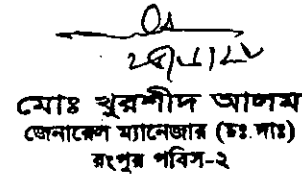 মোঃ খুরশীদ আলম
জেনারেল ম্যানেজার (চঃ দাঃ)
রংপুর পবিস-২